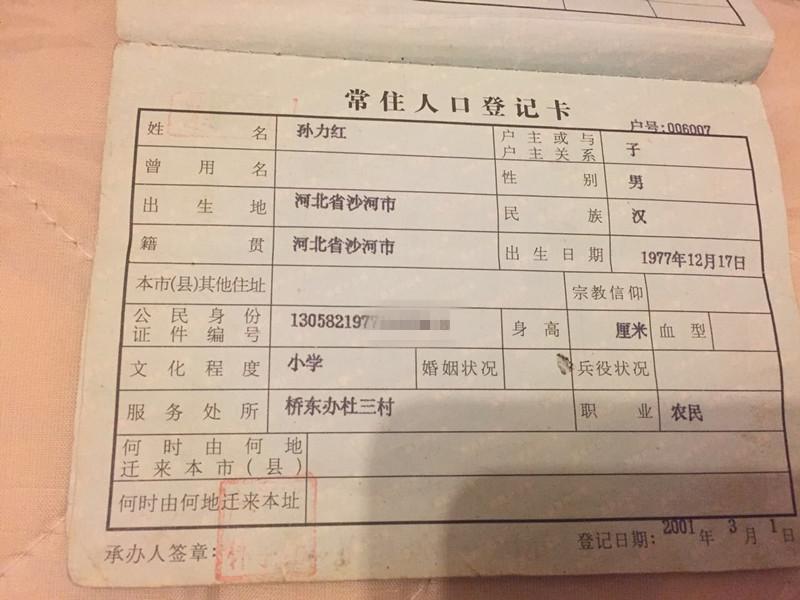 常住人口登记卡
户号:006007
姓名 孙力红 户主或与户主关系 子
曾用名 性别 男
出生地 河北省沙河市 民族 汉
籍贯 河北省沙河市 出生日期 1977年12月17日
本市(县)其他住址 宗教信仰
公民身份证件编号 1305821977 身高 厘米 血型
文化程度 小学 婚姻状况 兵役状况
服务处所 桥东办杜三村 职业 农民
何时由何地迁来本市(县)
何时由何地迁来本址
承办人签章: 登记日期: 2001年3月1日